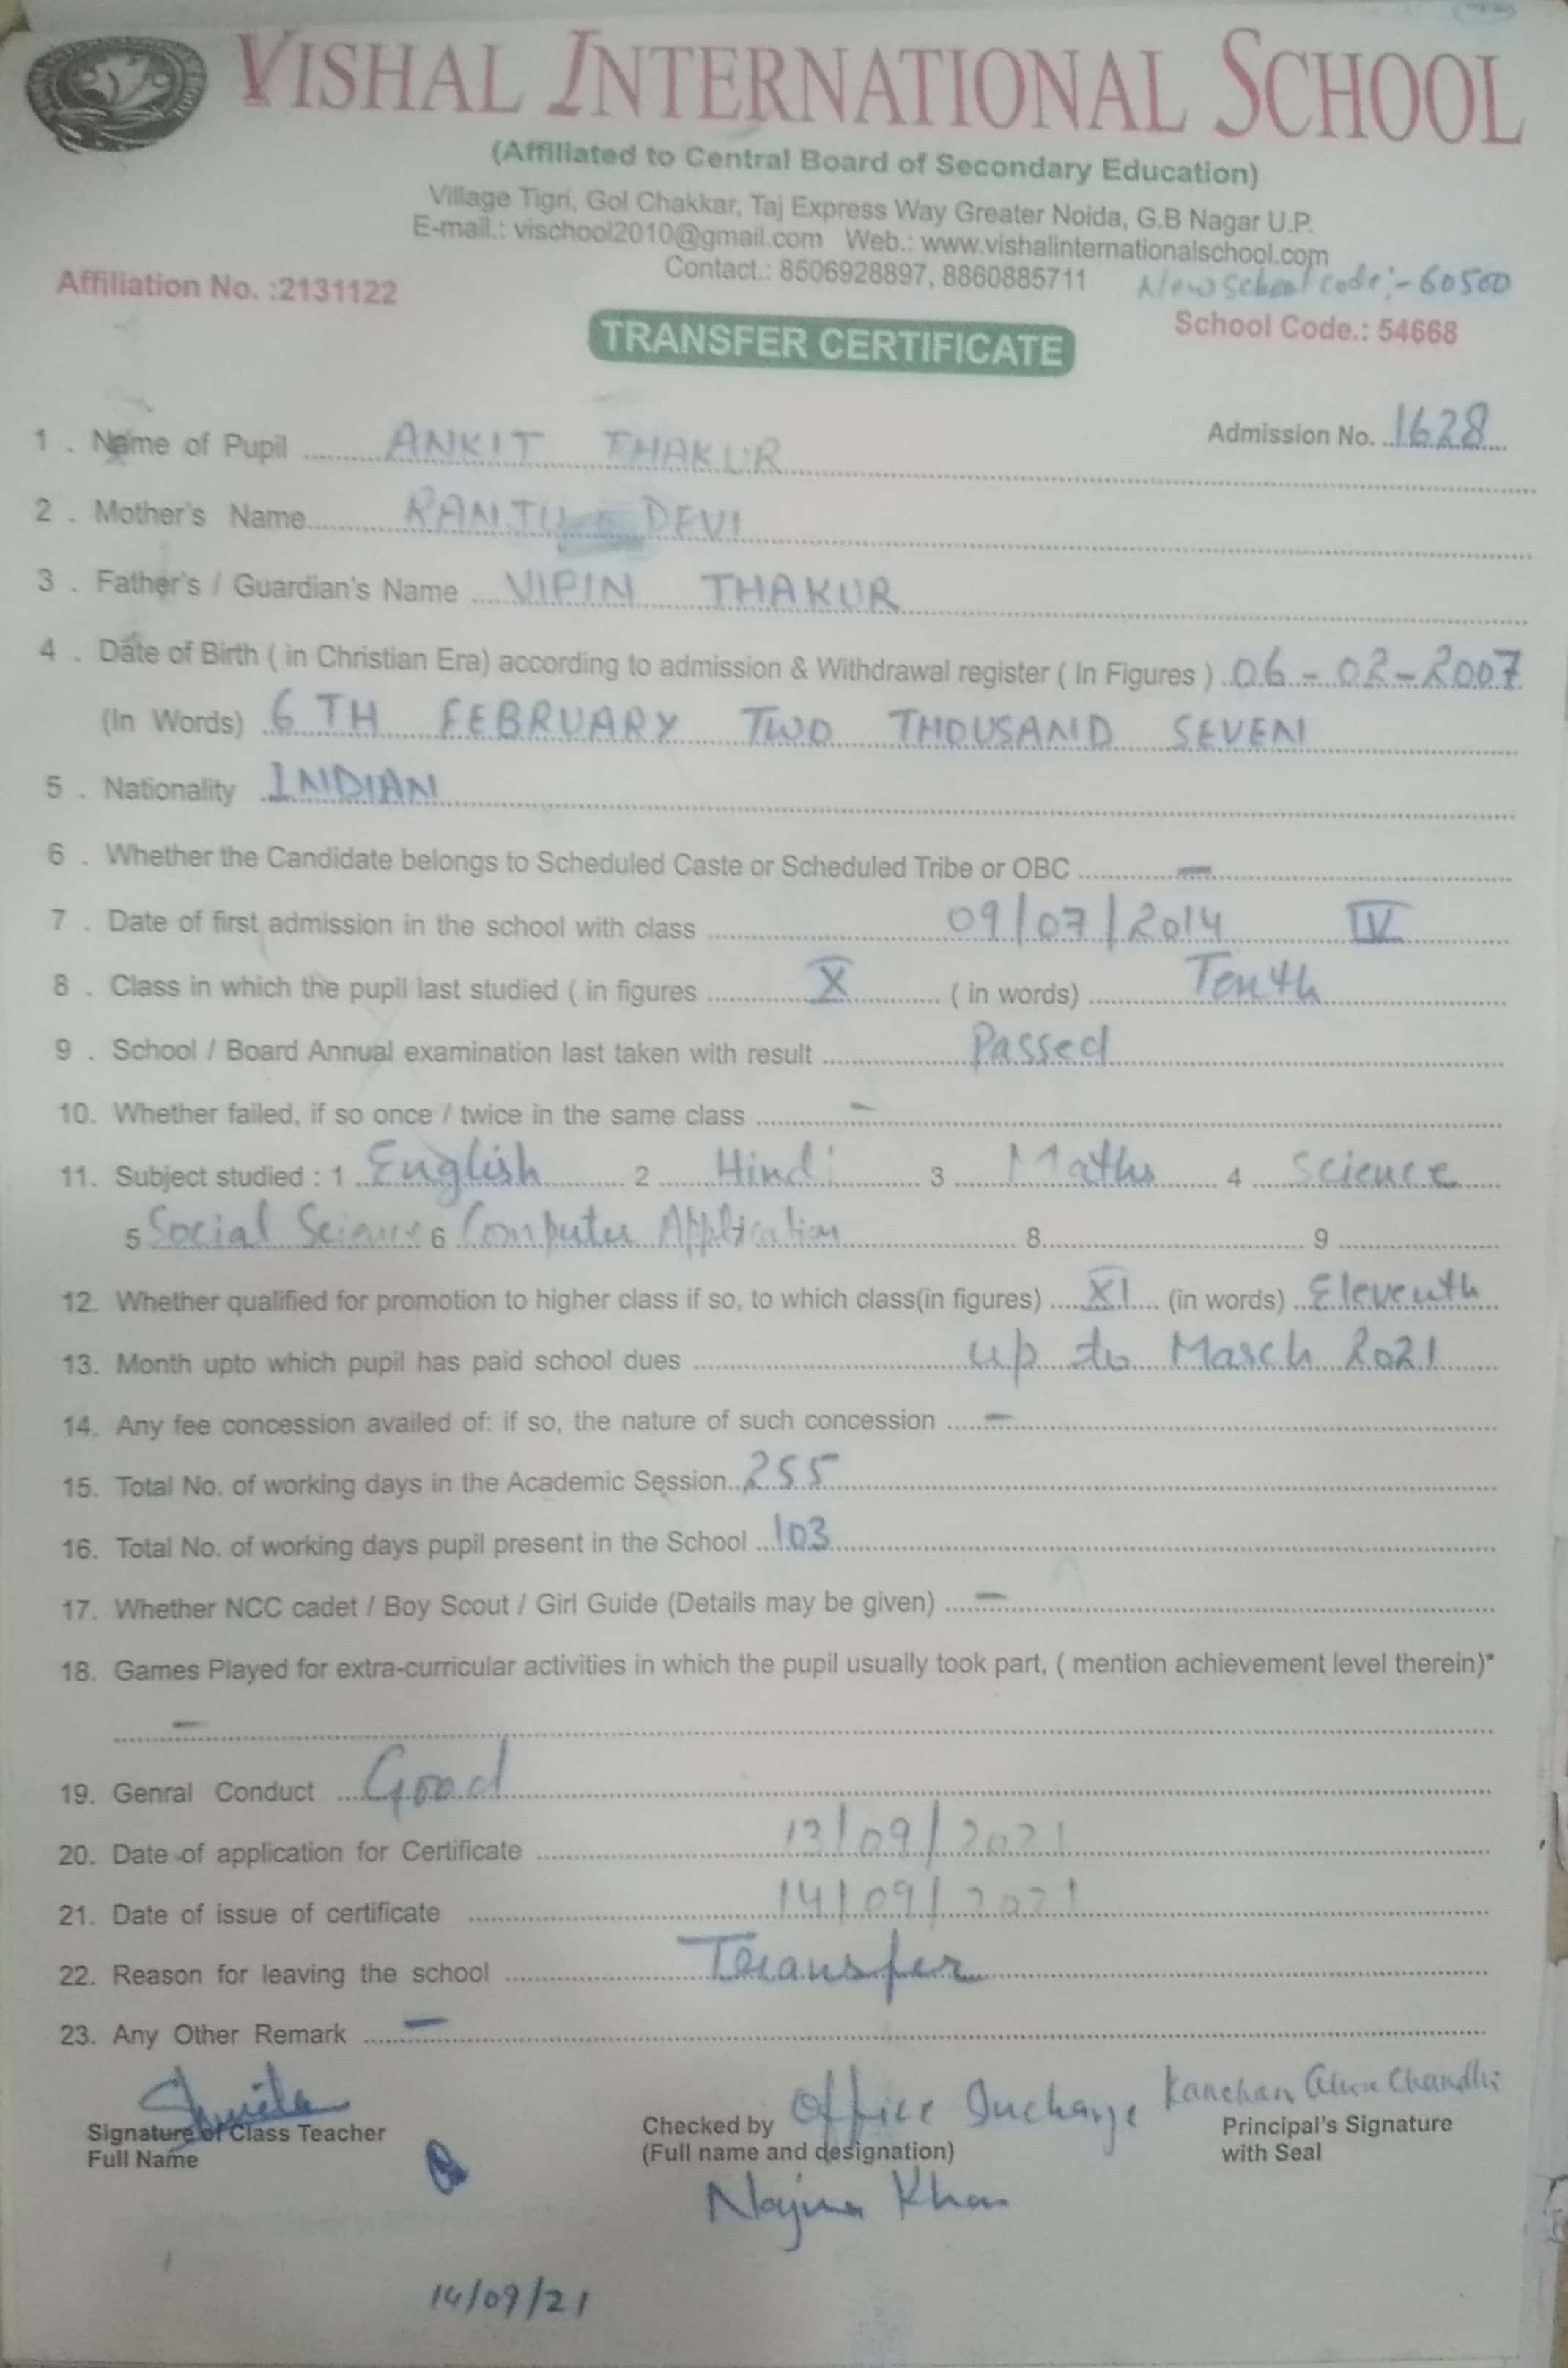 VISHAL INTERNATIONAL SCHOOL
(Affiliated to Central Board of Secondary Education)
Village Tigri, Gol Chakkar, Taj Express Way Greater Noida, G.B Nagar U.P.
E-mail.: vischool2010@gmail.com Web.: www.vishalinternationalschool.com
Contact.: 8506928897, 8860885711
New School code:- 60500
Affiliation No. :2131122
School Code.: 54668
TRANSFER CERTIFICATE
Admission No. 1628
1 . Name of Pupil ANKIT THAKUR
2 . Mother's Name RANJU DEVI
3 . Father's / Guardian's Name VIPIN THAKUR
4 . Date of Birth ( in Christian Era) according to admission & Withdrawal register ( In Figures ) 06 - 02 - 2007
(In Words) 6 TH FEBRUARY TWO THOUSAND SEVEN
5 . Nationality INDIAN
6 . Whether the Candidate belongs to Scheduled Caste or Scheduled Tribe or OBC —
7 . Date of first admission in the school with class 09/07/2014 IV
8 . Class in which the pupil last studied ( in figures X ( in words) Tenth
9 . School / Board Annual examination last taken with result Passed
10. Whether failed, if so once / twice in the same class —
11. Subject studied : 1 English 2 Hindi 3 Maths 4 Science
5 Social Science 6 Computer Application 8 9
12. Whether qualified for promotion to higher class if so, to which class(in figures) XI (in words) Eleventh
13. Month upto which pupil has paid school dues up to March 2021
14. Any fee concession availed of: if so, the nature of such concession —
15. Total No. of working days in the Academic Session 255
16. Total No. of working days pupil present in the School 103
17. Whether NCC cadet / Boy Scout / Girl Guide (Details may be given) —
18. Games Played for extra-curricular activities in which the pupil usually took part, ( mention achievement level therein)*
—
19. Genral Conduct Good
20. Date of application for Certificate 13/09/2021
21. Date of issue of certificate 14/09/2021
22. Reason for leaving the school Transfer
23. Any Other Remark —
Office Incharge Kanchan
Signature of Class Teacher Checked by Principal's Signature
Full Name (Full name and designation) with Seal
Najma Khan
14/09/21